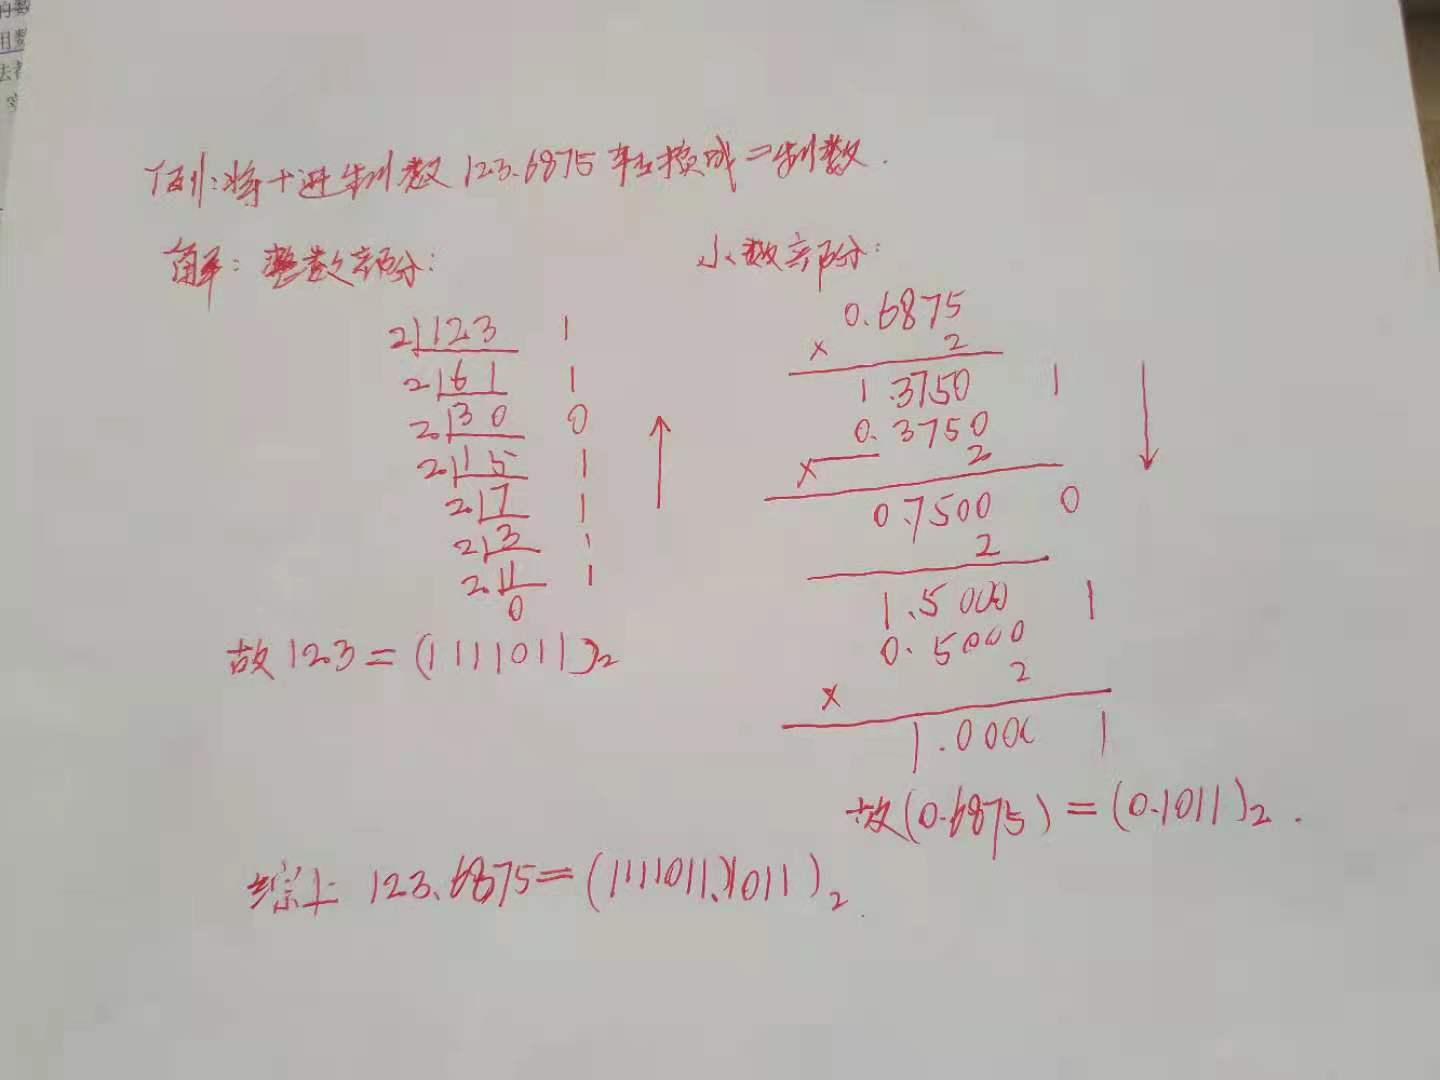 例:将十进制数 123.6875 转换成二制数.
解: 整数部分:
2 123 1
2 61 1
2 30 0
2 15 1
2 7 1
2 3 1
2 1 1
0
故 123 = (1111011)2
小数部分:
0.6875
× 2
1.3750 1
0.3750
× 2
0.7500 0
2
1.5000 1
0.5000
2
×
1.000 1
故(0.6875) = (0.1011)2.
综上 123.6875=(1111011.1011)2.